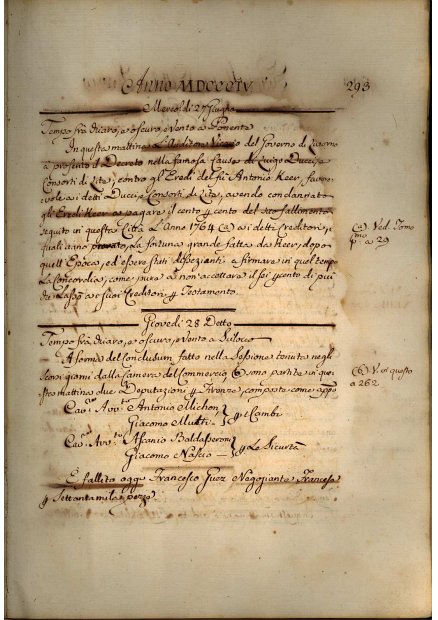 Anno MDCCCIV
293
Mercoledì 27 Giugno
Tempo frà chiaro, e oscuro, e Vento a Ponente
In questa mattina L'Auditore Vicario del Governo di Livorno
à proferito il Decreto nella famosa Causa di Luigi Ducci, e
Consorti di Lite, contro gli Eredi del fù Antonio Keer, favore
vole a i detti Ducci, e Consorti di Lite, avendo condannato
gli Eredi Keer a pagare il cento per cento del suo fallimento
seguito in questa Città L'Anno 1764 (a) a i detti Creditori, i
quali anno provato, La fortuna grande fatta da Keer, dopo
quell'Epoca, ed essere stati a firmare in quel tempo
La Concordia, come pure a non accettare il sei per cento di più
da Lasso a suoi Creditori per Testamento.
(a) Ved. Tomo
pmo a 29
Giovedì 28 Detto
Tempo frà chiaro, e oscuro, e Vento a Scilocco
A forma del Conclusum fatto nella Sessione tenuta negli
scorsi giorni dalla Camera del Commercio (b) sono partite in que
sta mattina due Deputazioni per Firenze, composte come appo
(b) V. in questo
a 262
Cav. Avv.to Antonio Michon
Giacomo Mutti
per i Cambi
Cav. Avv.to Ascanio Baldasseroni
Giacomo Nascio
per Le Sicurtà
È fallito oggi Francesco Guez Negoziante Francese
per Settantamila pezze